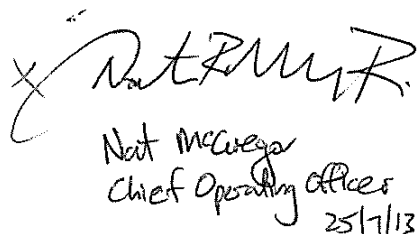 X
Nat McGregor
Chief Operating Officer
25/7/13